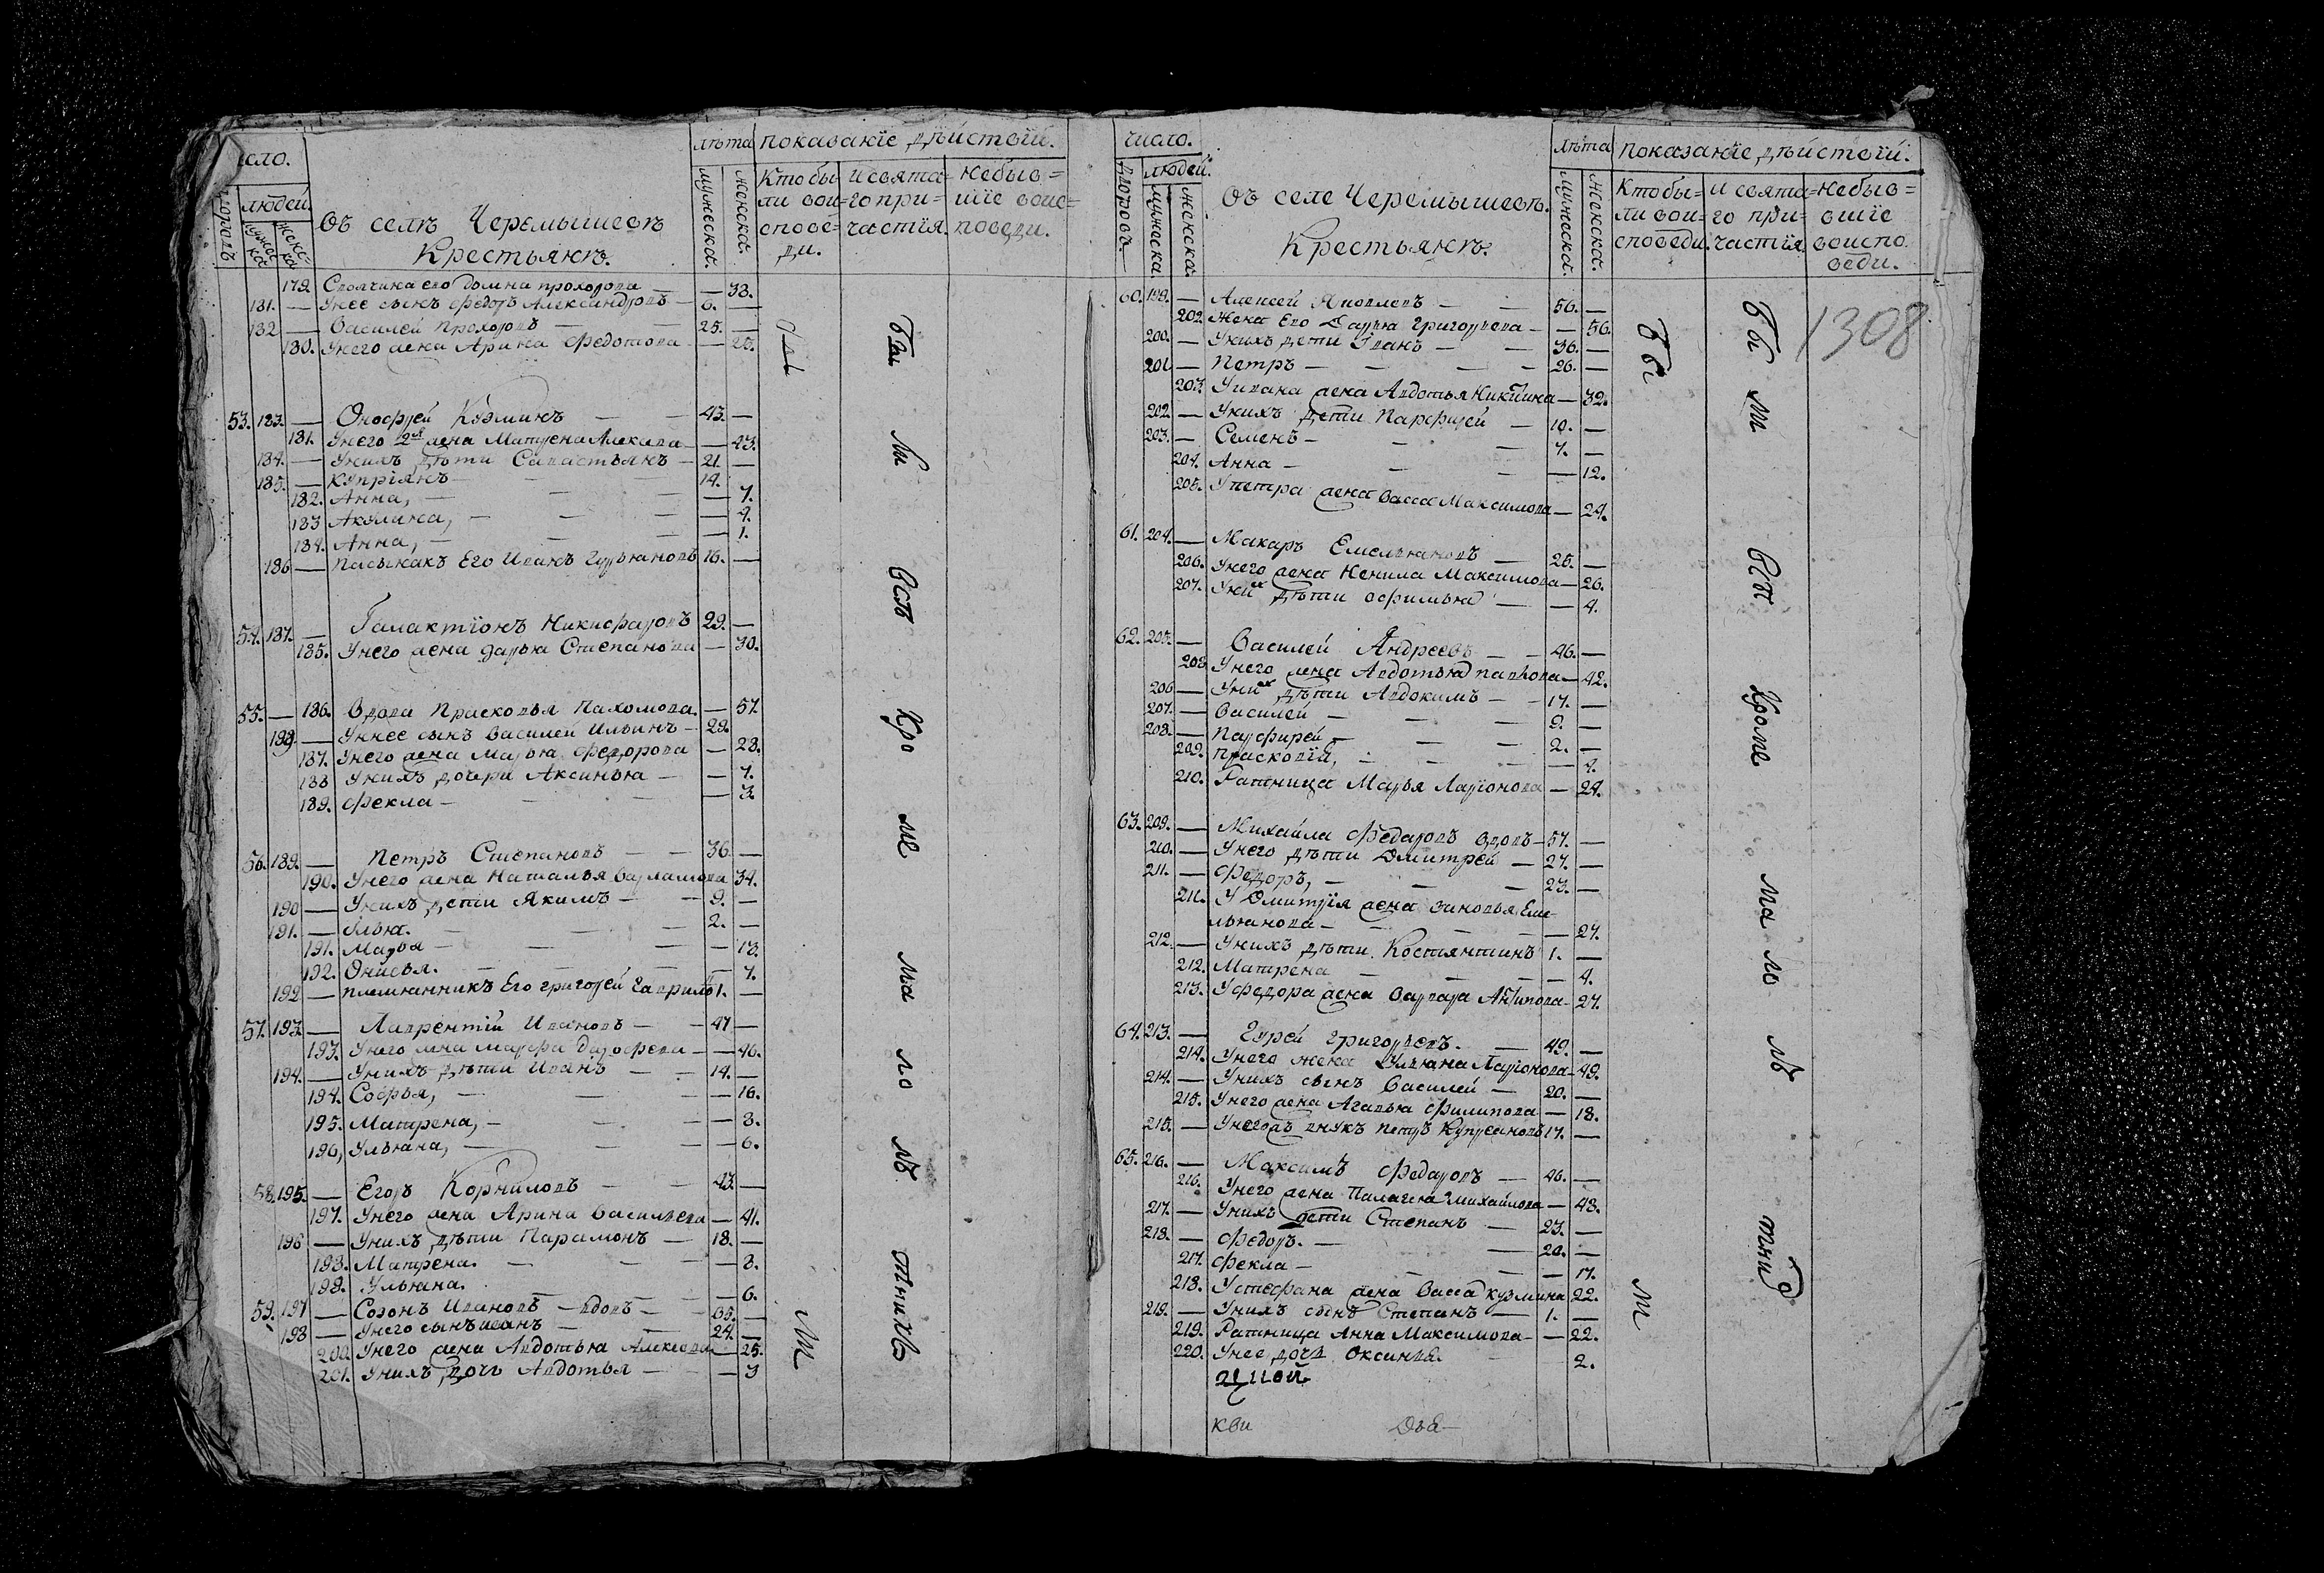 число.
людей.
въ селѣ Черемышевѣ
Крестьянъ.
лѣта
мужеска.
женска.
показанїе дѣйствїй.
Кто бы=
ли во и=
спове=
ди.
и свята=
го при=
частїя.
не быв=
шїе во ис=
поведи.
179. его Домна Прохорова — — 33.
181. — У нее сынъ Федоръ Александровъ — 6. —
182 — Василей Прохоровъ — 25. —
180. У него жена Арина Федотова — — 25.
53. 183. — Онофрей Кузминъ — — 43. —
181. У него 2я жена Матрена — — 43.
184. — У нихъ дѣти Савастьянъ — 21. —
185. — Купрїянъ — 14.
182. Анна, — — — — 7.
183 Акулина, — — — — 4.
184. Анна, — — — — 1.
186 — Пасынакъ Его Иванъ Гурьяновъ 16. —
54. 187. — Галактїонъ Никифаровъ 29. —
185. У него жена Дарья Степанова — 30.
55. — 186. Вдова Прасковья Пахомова. — 57.
188. — У нее сынъ Василей Ильинъ — 29.
187. У него жена Марья Федорова — 28.
188 У нихъ дочери Аксинья — — 7.
189. Фекла — — 3.
56. 189. — Петръ Степановъ — — 36. —
190. У него жена Наталья Варламова 34.
190 — У нихъ дети Якимъ — — 9. —
191. — Илья. — — — 2. —
191. Марья — — — — 13.
192. Онисья. — — — 7.
192 — племянникъ Его Григорей Гаврило 1. —
57. 193. — Лаврентїй Ивановъ — — 47 —
193. У него жена Марфа Дарофеева — — 46.
194. — У нихъ дѣти Иванъ — — 14. —
194. Софья, — — — — 16.
195. Матрена, — — — — 8.
196, Ульяна, — — — — 6.
58. 195. — Егоръ Корниловъ — — 43. —
197. У него жена Арина Васильева — 41.
196 — У нихъ дѣти Парамонъ — 18. —
198. Матрена. — — — 8.
199. Ульяна. — — — 6.
59. 197 — Созонъ Ивановъ — вдовъ — 65. —
198 — У него сынъ Иванъ — 24. —
200. У него жена Авдотья — 25.
201. У нихъ дочь Авдотья — — 3
Бы
ли
всѣ
Кро
ме
ма
ло
лѣ
тнихъ
число.
Дворовъ
людей.
мужеска
женска.
въ селе Черемышевѣ.
Крестьянъ.
лѣта
мужеска.
женска.
показанїе дѣйствїй.
Кто бы=
ли во и=
споведи.
и свята=
го при=
частїя
не быв=
шїе
во испо
веди.
1308
60. 199. — Алексей Яковлевъ — — 56. —
202. Жена Его Дарья Григорьева — — 56.
200. — У нихъ дети Іванъ — — 36. —
201. — Петръ — — — — 26. —
203. У Ивана жена Авдотья Никитина — 32.
202. — У нихъ дети Парфирей — 10. —
203. — Семенъ — — — 7. —
204. Анна — — — — 12.
205. У Петра жена Васса Максимова — 24.
61. 204. — Макаръ Емельяновъ — 25. —
206. У него жена Ненила Максимова — 26.
207. У нихъ дѣти Офимья — — 4.
62. 205. — Василей Андреевъ — — 46. —
208. У него жена Авдотья Павлова — 42.
206 — У нихъ дѣти Авдокимъ — — 17. —
207. — Василей — — — 9. —
208. — Парфирей — — — 2. —
209. Прасковїя, — — — — 7.
210. Ратница Марья Ларїонова — 24.
63. 209. — Михаила Федаровъ вдовъ — 57. —
210. — У него дѣти Дмитрей — 27. —
211. — Федоръ, — — — 23. —
211. У Дмитрїя жена Зиновья Еме-
льянова — — — — 27.
212. — У нихъ дѣти Костянтинъ 1. —
212. Матрена — — — — 4.
213. У Федора жена Варвара Антипова — 27.
64. 213. — Гурей Григорьевъ. — 49. —
214. У него жена Ульяна Ларїонова — 49.
214. — У нихъ сынъ Василей — 20. —
215. У него жена Агапья Филипова — 18.
215. — внукъ Петръ 17. —
65. 216. — Максимъ Федаровъ — 46. —
216. У него жена Палагея Михайлова — 48.
217. — У нихъ дети Степанъ — 23. —
218. — Федоръ. — — 20. —
217. Фекла — — — 17.
218. У Стефана жена Васса Кузмина 22.
219. — У нихъ сынъ Степанъ — 1. —
219. Ратница Анна Максимова — — 22.
220. У нее дочь Оксинья. — 2.
Бы
ли
всѣ
Кроме
ма ло
лѣ
тни